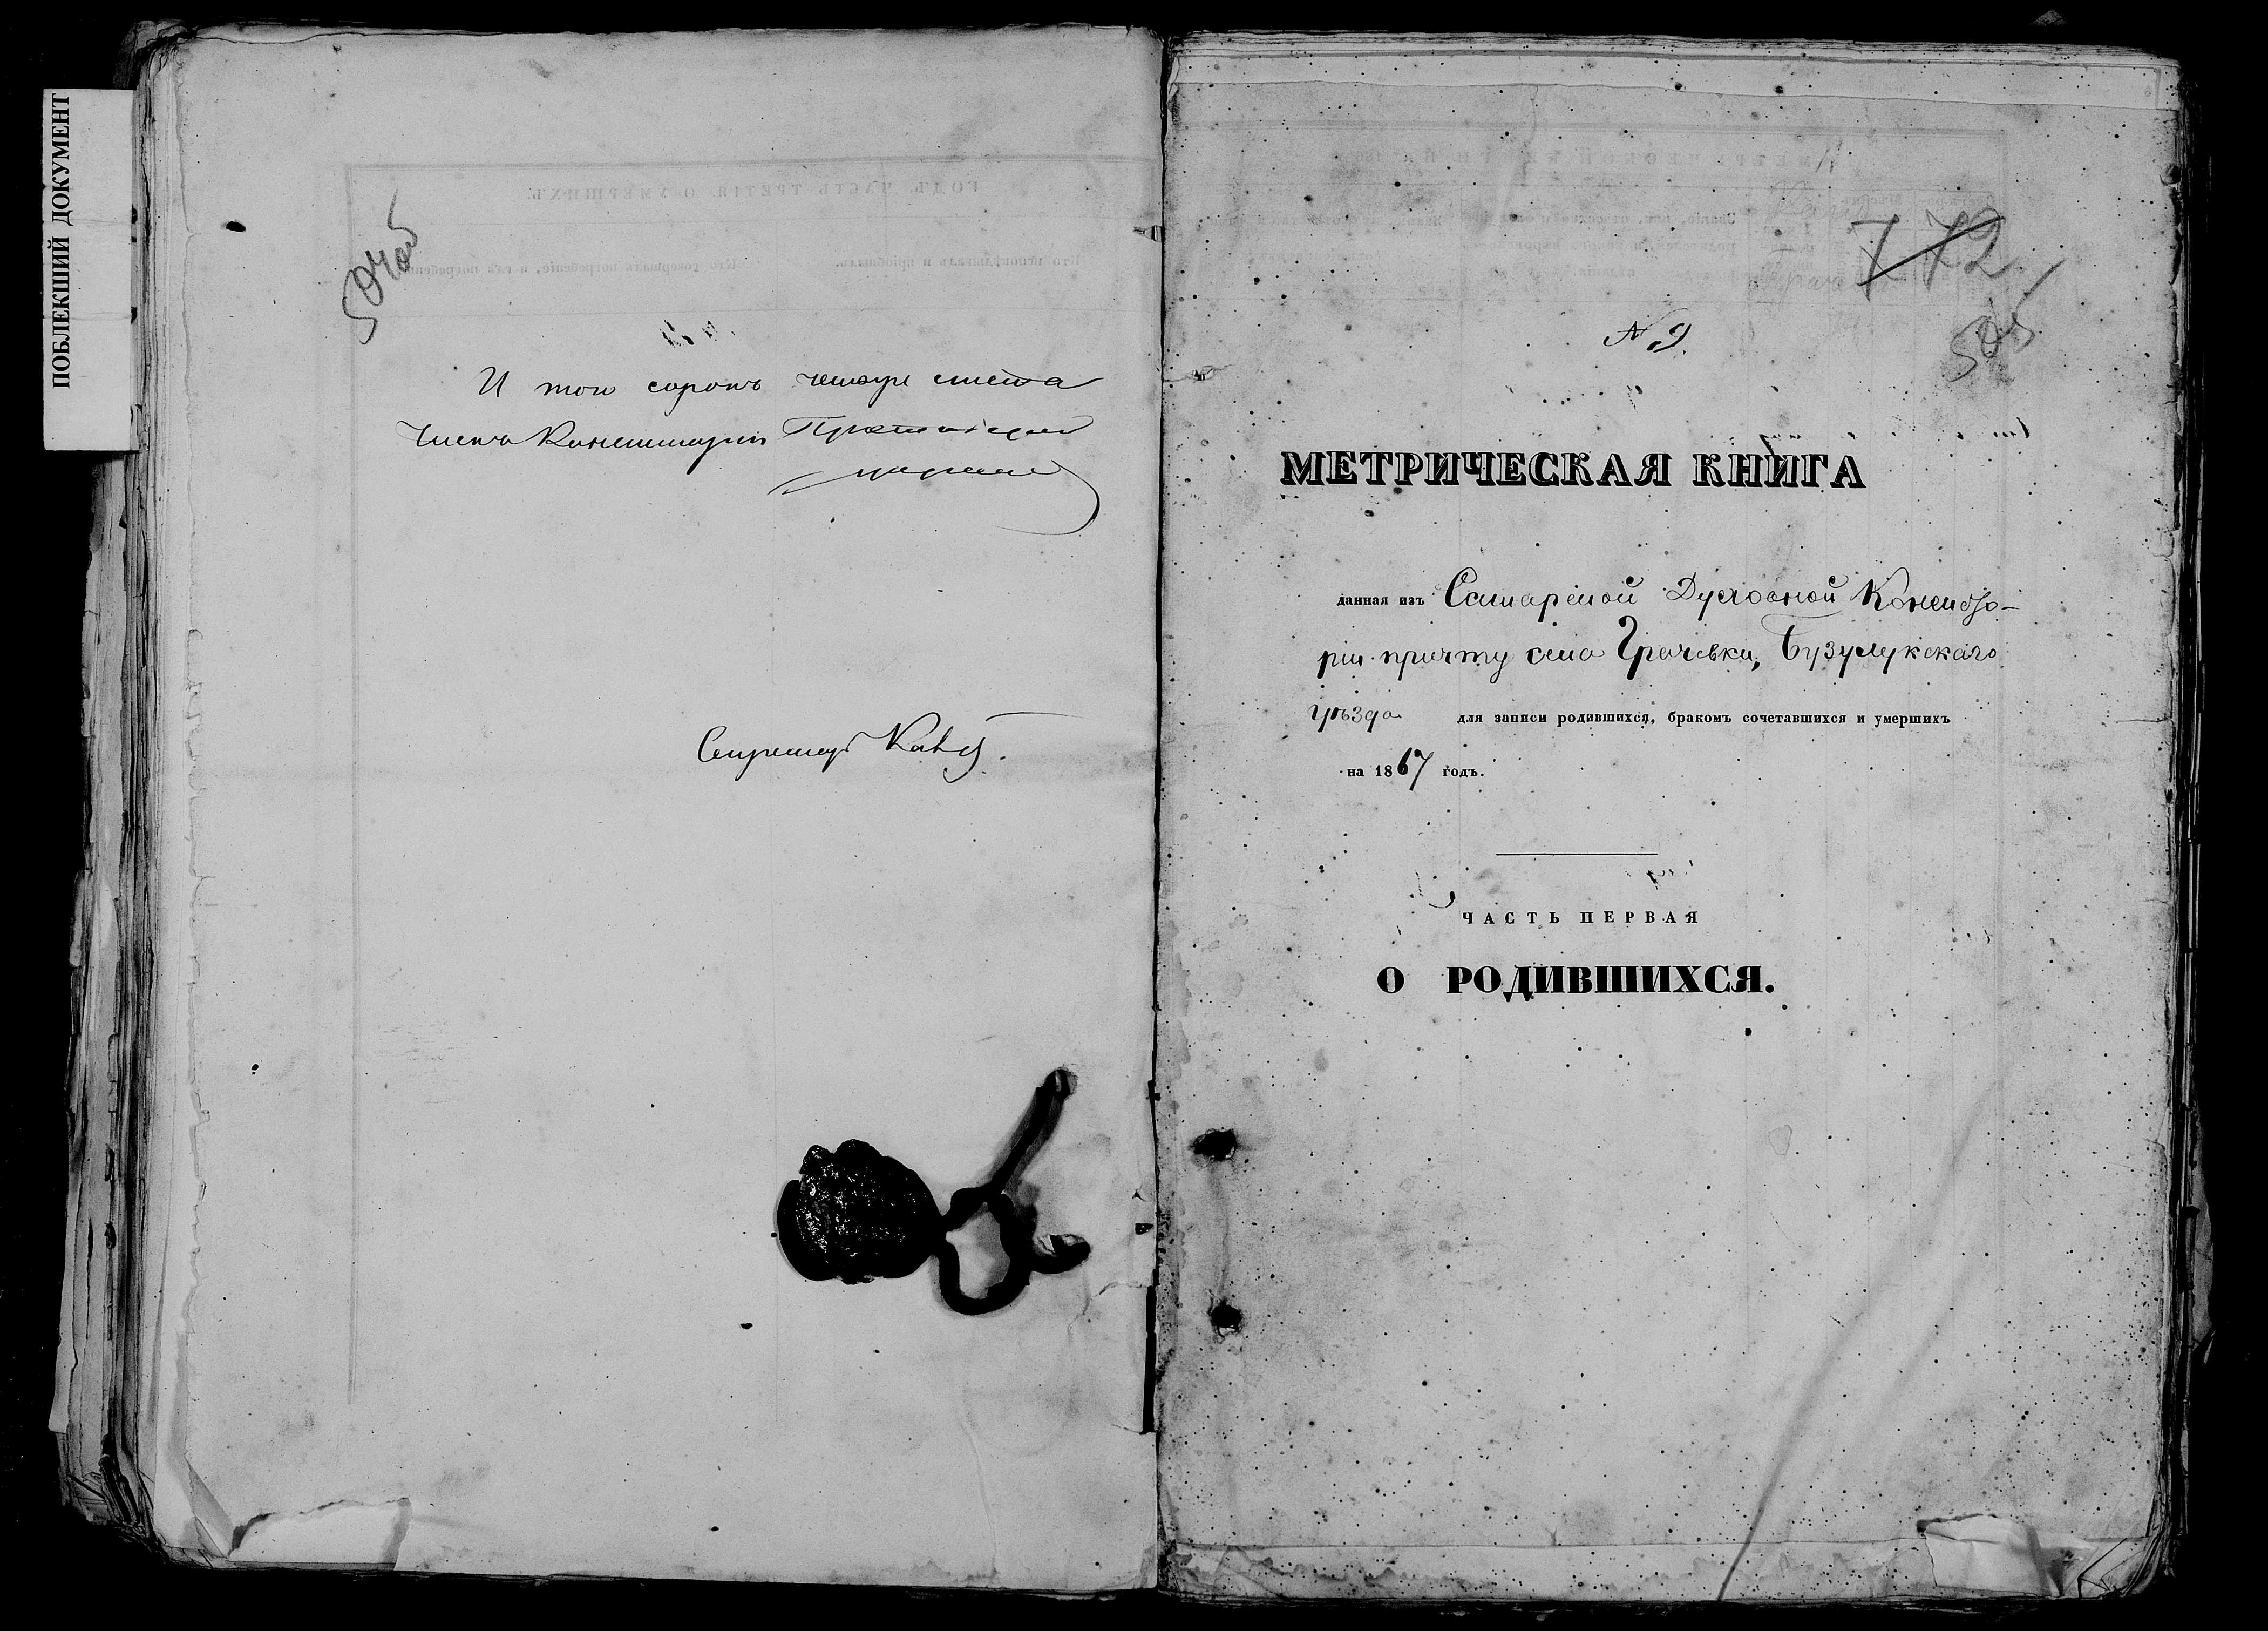 ПОБЛЕКШИЙ ДОКУМЕНТ
504об
И того сорокъ четыре листа
Членъ Консисторіи Протоіерей
Секретарь
772
505
№ 9.
МЕТРИЧЕСКАЯ КНИГА
данная изъ Самарской Духовной Консисто-
ріи причту села Грачевки, Бузулукскаго
уѣзда для записи родившихся, бракомъ сочетавшихся и умершихъ
на 1867 годъ.
ЧАСТЬ ПЕРВАЯ
О РОДИВШИХСЯ.